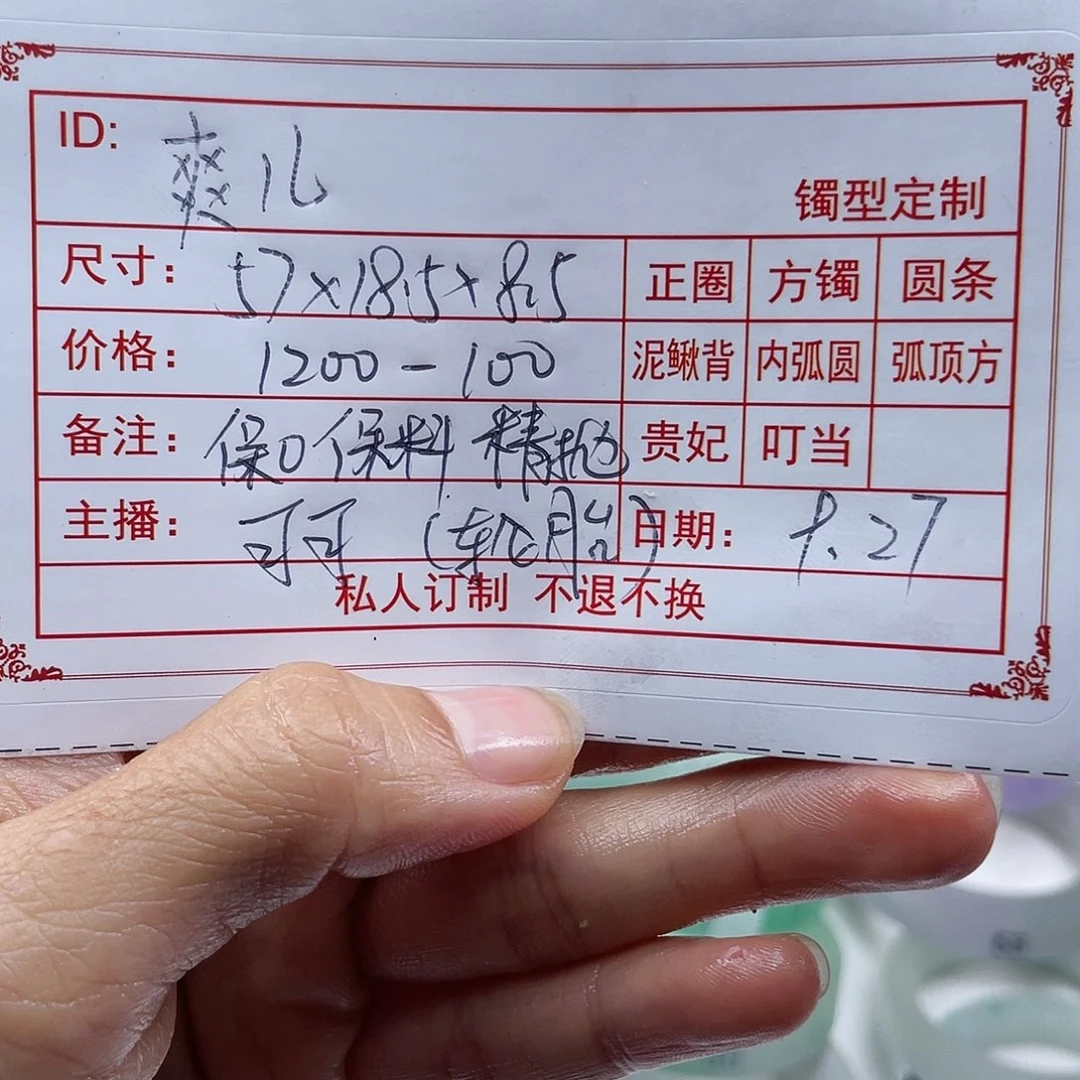 ID: 爽儿
镯型定制
尺寸: 57×18.5×8.5 正圈 方镯 圆条
价格: 1200-100 泥鳅背 内弧圆 弧顶方
备注: 保口保料 精抛 贵妃 叮当
主播: 可可 (轮胎) 日期: 9.27
私人订制 不退不换